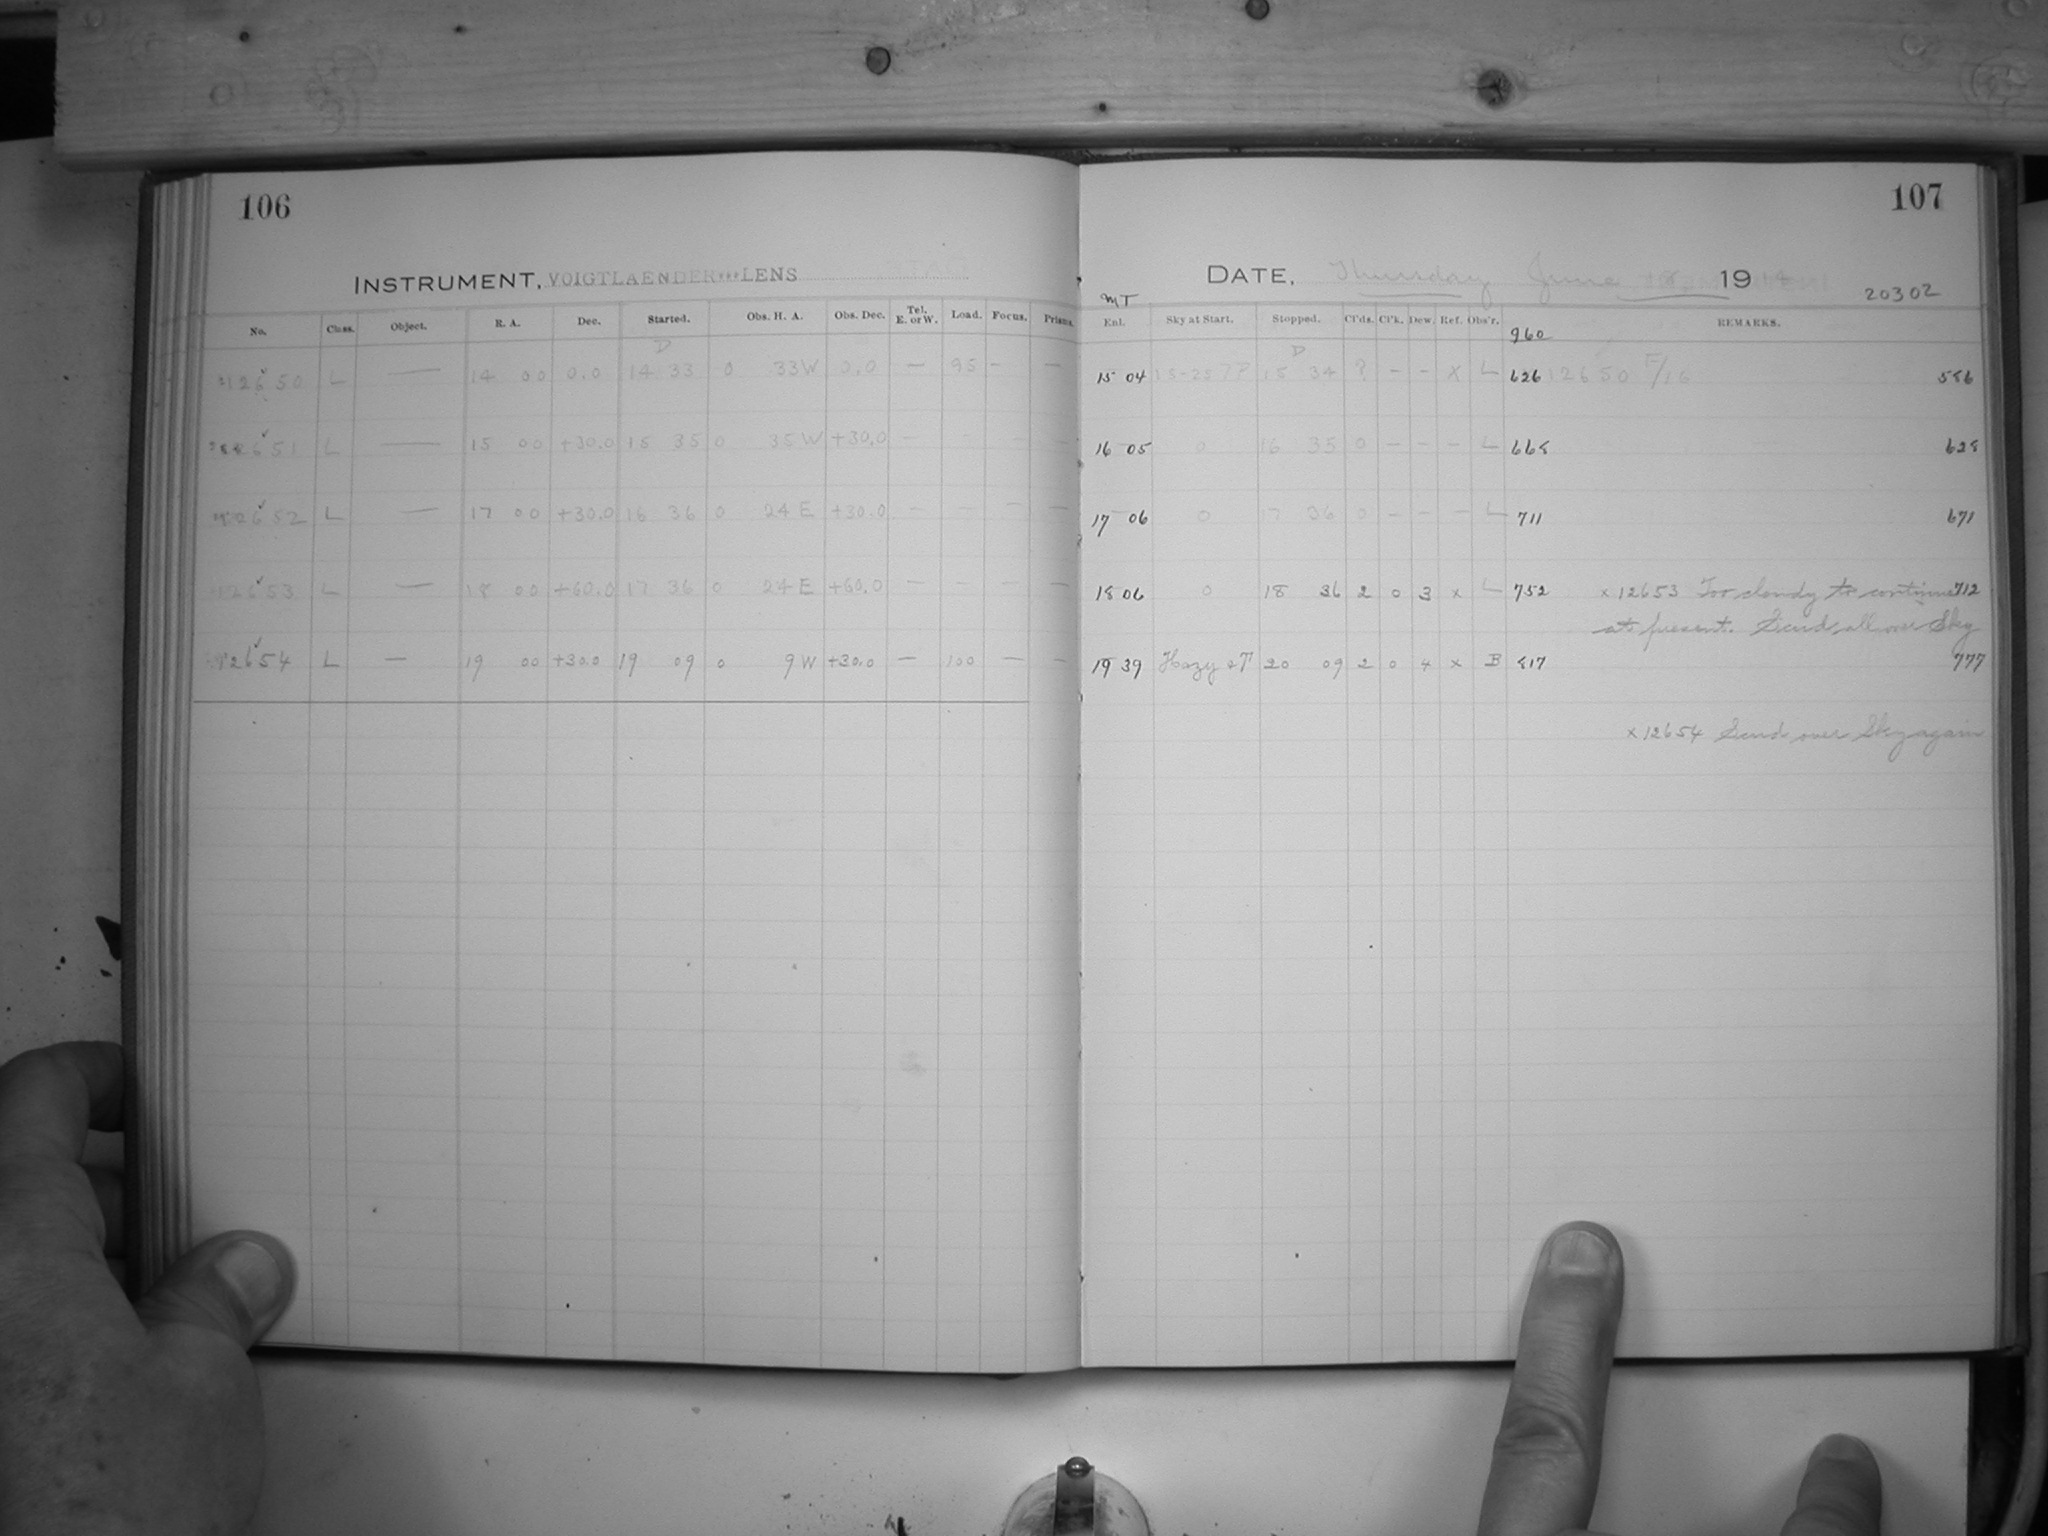 106
INSTRUMENT, VOIGTLAENDER***LENS
No. Class. Object. R. A. Dec. Started. Obs. H. A. Obs. Dec. Tel. E. or W. Load. Focus. Prisms.
D
12650 L — 14 00 0.0 14 33 0 33W 0.0 — 95 – —
12651 L — 15 00 +30.0 15 35 0 35W +30.0 — – – —
12652 L — 17 00 +30.0 16 36 0 24 E +30.0 – – – —
12653 L — 18 00 +60.0 17 36 0 24 E +60.0 — – – —
12654 L — 19 00 +30.0 19 09 0 9 W +30.0 — 100 — —
107
DATE, Thursday June 19
MT 20302
Enl. Sky at Start. Stopped. Cl'ds. Cl'k. Dew. Ref. Obs'r. REMARKS.
960
D
15 04 15 34 ? – – X L 626 12650 F/16 586
16 05 0 16 35 0 – – – L 668 628
17 06 0 17 36 0 – – – L 711 671
18 06 0 18 36 2 0 3 x L 752 x 12653 Too cloudy to continue 712
at present. Scud all over Sky
19 39 Hazy & T 20 09 2 0 4 x B 817 777
x 12654 Scud over Sky again